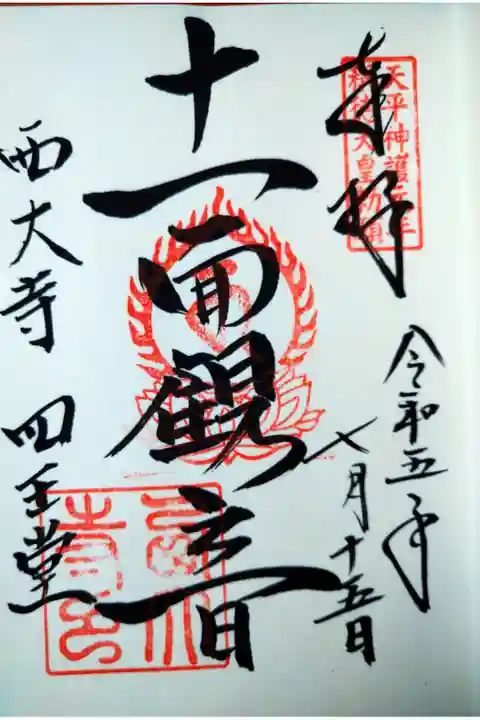 天平神護元年
称徳天皇勅願
奉拝
令和五年
七月十五日
十一面観音
西大寺 四王堂